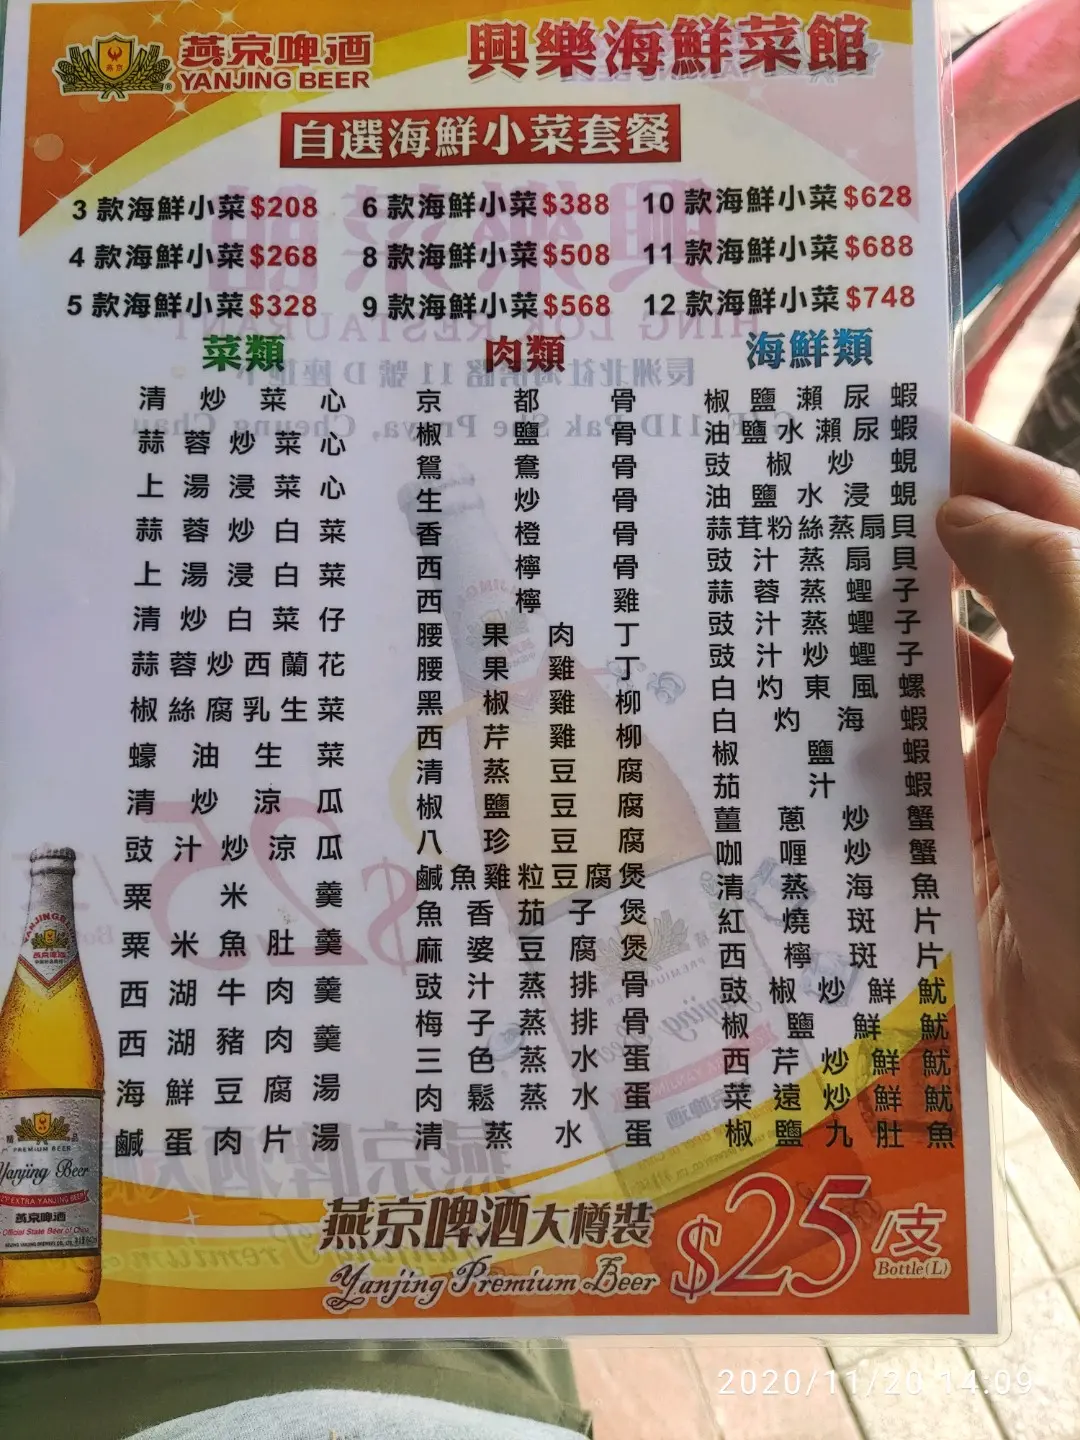 燕京啤酒
YANJING BEER
興樂海鮮菜館
自選海鮮小菜套餐
3 款海鮮小菜$208
6 款海鮮小菜$388
10 款海鮮小菜$628
4 款海鮮小菜$268
8 款海鮮小菜$508
11 款海鮮小菜$688
5 款海鮮小菜$328
9 款海鮮小菜$568
12 款海鮮小菜$748
菜類
清炒菜心
蒜蓉炒菜心
上湯浸菜心
蒜蓉炒白菜
上湯浸白菜
清炒白菜仔
蒜蓉炒西蘭花
椒絲腐乳生菜
蠔油生菜
清炒涼瓜
豉汁炒涼瓜
粟米羹
粟米魚肚羹
西湖牛肉羹
西湖豬肉羹
海鮮豆腐湯
鹹蛋肉片湯
肉類
京都骨
椒鹽骨
鴛鴦骨
生炒骨
香橙骨
西檸骨
西檸雞
腰果肉丁
腰果雞丁
黑椒雞柳
西芹雞柳
清蒸豆腐
椒鹽豆腐
八珍豆腐
鹹魚雞粒豆腐煲
魚香茄子煲
麻婆豆腐煲
豉汁蒸排骨
梅子蒸排骨
三色蒸水蛋
肉鬆蒸水蛋
清蒸水蛋
海鮮類
椒鹽瀨尿蝦
油鹽水瀨尿蝦
豉椒炒蜆
油鹽水浸蜆
蒜茸粉絲蒸扇貝
豉汁蒸扇貝
蒜蓉蒸蟶子
豉汁蒸蟶子
豉汁炒蟶子
白灼東風螺
白灼海蝦
椒鹽蝦
茄汁蝦
薑蔥炒蟹
咖喱炒蟹
清蒸海魚
紅燒斑片
西檸斑片
豉椒炒鮮魷
椒鹽鮮魷
西芹炒鮮魷
菜遠炒鮮魷
椒鹽九肚魚
燕京啤酒大樽裝
Yanjing Premium Beer
$25/支
Bottle(L)
PREMIUM BEER
Yanjing Beer
燕京啤酒
Official State Beer of China
2020/11/20 14:09